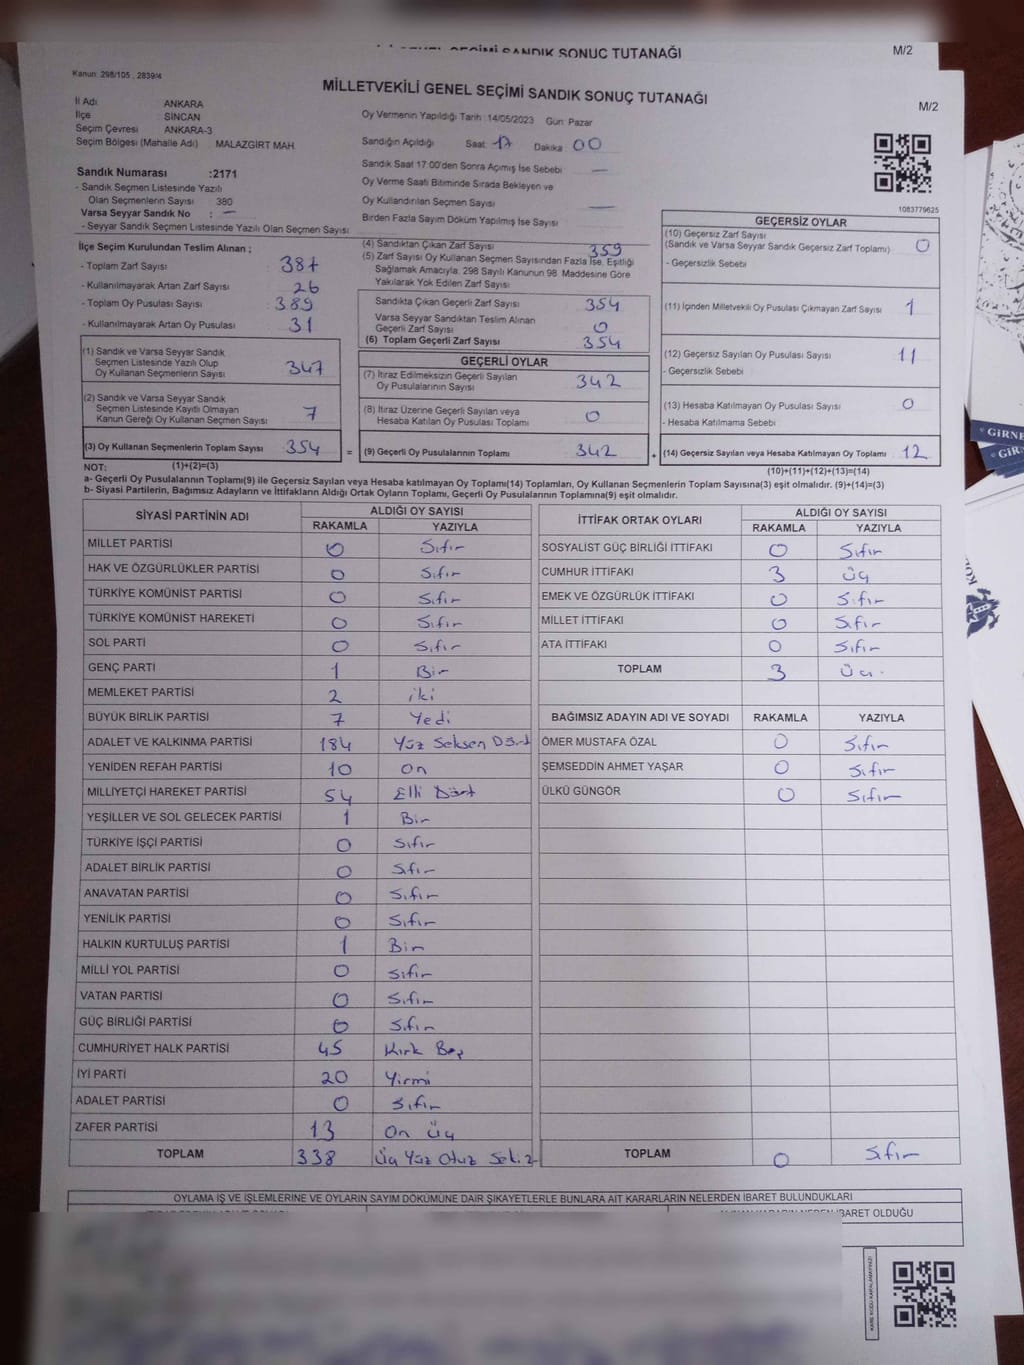 SANDIK SONUÇ TUTANAĞI
M/2
Kanun: 298/105 , 2839/4
MİLLETVEKİLİ GENEL SEÇİMİ SANDIK SONUÇ TUTANAĞI
M/2
İl Adı ANKARA
İlçe SİNCAN
Seçim Çevresi ANKARA-3
Seçim Bölgesi (Mahalle Adı) MALAZGİRT MAH.
Oy Vermenin Yapıldığı Tarih :14/05/2023 Gün: Pazar
Sandığın Açıldığı Saat: 17 Dakika 00
Sandık Saat 17:00'den Sonra Açımış İse Sebebi —
Oy Verme Saati Bitiminde Sırada Bekleyen ve
Oy Kullandırılan Seçmen Sayısı —
Birden Fazla Sayım Döküm Yapılmış İse Sayısı
Sandık Numarası :2171
- Sandık Seçmen Listesinde Yazılı
Olan Seçmenlerin Sayısı 380
Varsa Seyyar Sandık No : —
- Seyyar Sandık Seçmen Listesinde Yazılı Olan Seçmen Sayısı
1083779625
İlçe Seçim Kurulundan Teslim Alınan ;
- Toplam Zarf Sayısı 387
- Kullanılmayarak Artan Zarf Sayısı 26
- Toplam Oy Pusulası Sayısı 389
- Kullanılmayarak Artan Oy Pusulası 31
(1) Sandık ve Varsa Seyyar Sandık
Seçmen Listesinde Yazılı Olup
Oy Kullanan Seçmenlerin Sayısı 347
(2) Sandık ve Varsa Seyyar Sandık
Seçmen Listesinde Kayıtlı Olmayan
Kanun Gereği Oy Kullanan Seçmen Sayısı 7
(3) Oy Kullanan Seçmenlerin Toplam Sayısı 354 =
(4) Sandıktan Çıkan Zarf Sayısı 359
(5) Zarf Sayısı Oy Kullanan Seçmen Sayısından Fazla İse, Eşitliği
Sağlamak Amacıyla; 298 Sayılı Kanunun 98. Maddesine Göre
Yakılarak Yok Edilen Zarf Sayısı
Sandıkta Çıkan Geçerli Zarf Sayısı 354
Varsa Seyyar Sandıktan Teslim Alınan
Geçerli Zarf Sayısı 0
(6) Toplam Geçerli Zarf Sayısı 354
GEÇERLİ OYLAR
(7) İtiraz Edilmeksizin Geçerli Sayılan
Oy Pusulalarının Sayısı 342
(8) İtiraz Üzerine Geçerli Sayılan veya
Hesaba Katılan Oy Pusulası Toplamı 0
(9) Geçerli Oy Pusulalarının Toplamı 342 +
GEÇERSİZ OYLAR
(10) Geçersiz Zarf Sayısı
(Sandık ve Varsa Seyyar Sandık Geçersiz Zarf Toplamı) 0
- Geçersizlik Sebebi
(11) İçinden Milletvekili Oy Pusulası Çıkmayan Zarf Sayısı 1
(12) Geçersiz Sayılan Oy Pusulası Sayısı 11
- Geçersizlik Sebebi
(13) Hesaba Katılmayan Oy Pusulası Sayısı 0
- Hesaba Katılmama Sebebi
(14) Geçersiz Sayılan veya Hesaba Katılmayan Oy Toplamı 12
NOT: (1)+(2)=(3) (10)+(11)+(12)+(13)=(14)
a- Geçerli Oy Pusulasının Toplamı(9) ile Geçersiz Sayılan veya Hesaba katılmayan Oy Toplamı(14) Toplamları, Oy Kullanan Seçmenlerin Toplam Sayısına(3) eşit olmalıdır. (9)+(14)=(3)
b- Siyasi Partilerin, Bağımsız Adayların ve İttifakların Aldığı Ortak Oyların Toplamı, Geçerli Oy Pusulalarının Toplamına(9) eşit olmalıdır.
SİYASİ PARTİNİN ADI ALDIĞI OY SAYISI
RAKAMLA YAZIYLA
MİLLET PARTİSİ 0 Sıfır
HAK VE ÖZGÜRLÜKLER PARTİSİ 0 Sıfır
TÜRKİYE KOMÜNİST PARTİSİ 0 Sıfır
TÜRKİYE KOMÜNİST HAREKETİ 0 Sıfır
SOL PARTİ 0 Sıfır
GENÇ PARTİ 1 Bir
MEMLEKET PARTİSİ 2 iki
BÜYÜK BİRLİK PARTİSİ 7 Yedi
ADALET VE KALKINMA PARTİSİ 184 Yüz Seksen Dört
YENİDEN REFAH PARTİSİ 10 On
MİLLİYETÇİ HAREKET PARTİSİ 54 Elli Dört
YEŞİLLER VE SOL GELECEK PARTİSİ 1 Bir
TÜRKİYE İŞÇİ PARTİSİ 0 Sıfır
ADALET BİRLİK PARTİSİ 0 Sıfır
ANAVATAN PARTİSİ 0 Sıfır
YENİLİK PARTİSİ 0 Sıfır
HALKIN KURTULUŞ PARTİSİ 1 Bir
MİLLİ YOL PARTİSİ 0 Sıfır
VATAN PARTİSİ 0 Sıfır
GÜÇ BİRLİĞİ PARTİSİ 0 Sıfır
CUMHURİYET HALK PARTİSİ 45 Kırk Beş
İYİ PARTİ 20 Yirmi
ADALET PARTİSİ 0 Sıfır
ZAFER PARTİSİ 13 On Üç
TOPLAM 338 Üç Yüz Otuz Sekiz
İTTİFAK ORTAK OYLARI ALDIĞI OY SAYISI
RAKAMLA YAZIYLA
SOSYALİST GÜÇ BİRLİĞİ İTTİFAKI 0 Sıfır
CUMHUR İTTİFAKI 3 Üç
EMEK VE ÖZGÜRLÜK İTTİFAKI 0 Sıfır
MİLLET İTTİFAKI 0 Sıfır
ATA İTTİFAKI 0 Sıfır
TOPLAM 3 Üç
BAĞIMSIZ ADAYIN ADI VE SOYADI RAKAMLA YAZIYLA
ÖMER MUSTAFA ÖZAL 0 Sıfır
ŞEMSEDDİN AHMET YAŞAR 0 Sıfır
ÜLKÜ GÜNGÖR 0 Sıfır
TOPLAM 0 Sıfır
OYLAMA İŞ VE İŞLEMLERİNE VE OYLARIN SAYIM DÖKÜMÜNE DAİR ŞİKAYETLERLE BUNLARA AİT KARARLARIN NELERDEN İBARET BULUNDUKLARI
İBARET OLDUĞU
KARE KODU KARALAMAYINIZ!
GİRNE